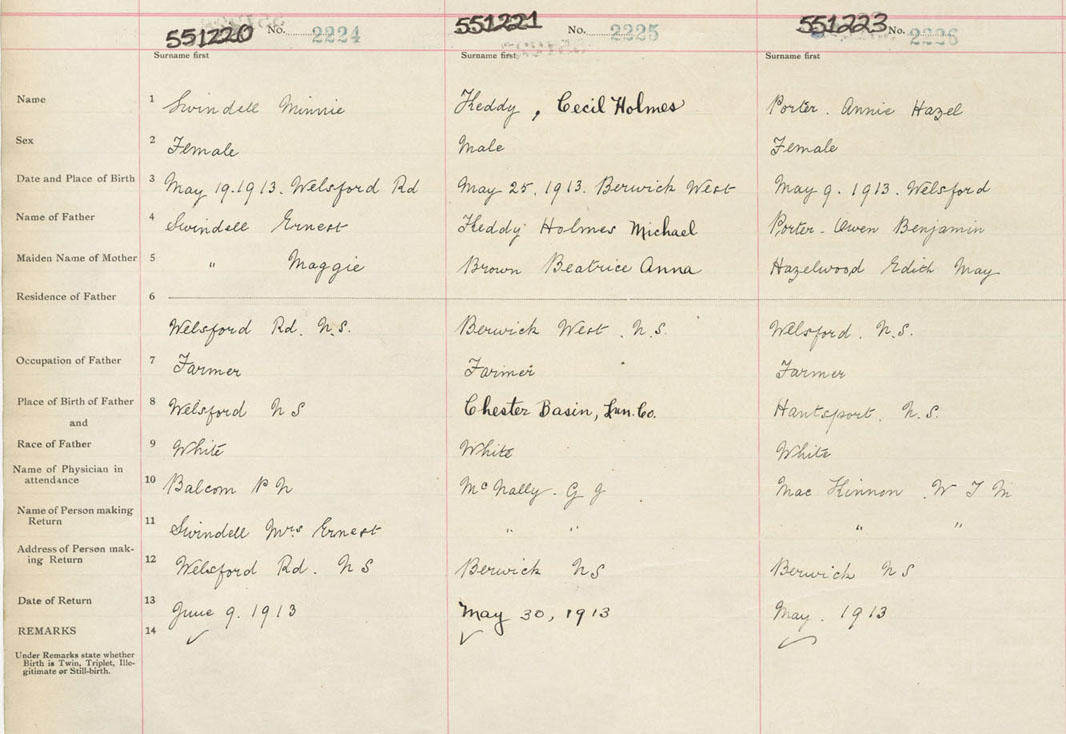 551220 No. 2224 551221 No. 2225 551223 No. 2226
Surname first Surname first Surname first
Name 1 Swindell Minnie Keddy, Cecil Holmes Porter. Annie Hazel
Sex 2 Female Male Female
Date and Place of Birth 3 May 19.1913. Welsford Rd May 25, 1913. Berwick West May 9. 1913. Welsford
Name of Father 4 Swindell Ernest Keddy Holmes Michael Porter. Owen Benjamin
Maiden Name of Mother 5 " Maggie Brown Beatrice Anna Hazelwood Edith May
Residence of Father 6
Welsford Rd. N.S. Berwick West. N.S. Welsford. N.S.
Occupation of Father 7 Farmer Farmer Farmer
Place of Birth of Father 8 Welsford NS Chester Basin, Lun. Co. Hantsport. N.S.
and
Race of Father 9 White White White
Name of Physician in
attendance 10 Balcom P N McNally. G J Mac Kinnon. W T M
Name of Person making
Return 11 Swindell Mrs Ernest " " " "
Address of Person mak-
ing Return 12 Welsford Rd. NS Berwick NS Berwick NS
Date of Return 13 June 9. 1913 May 30, 1913 May. 1913
REMARKS 14
Under Remarks state whether
Birth is Twin, Triplet, Ille-
gitimate or Still-birth.